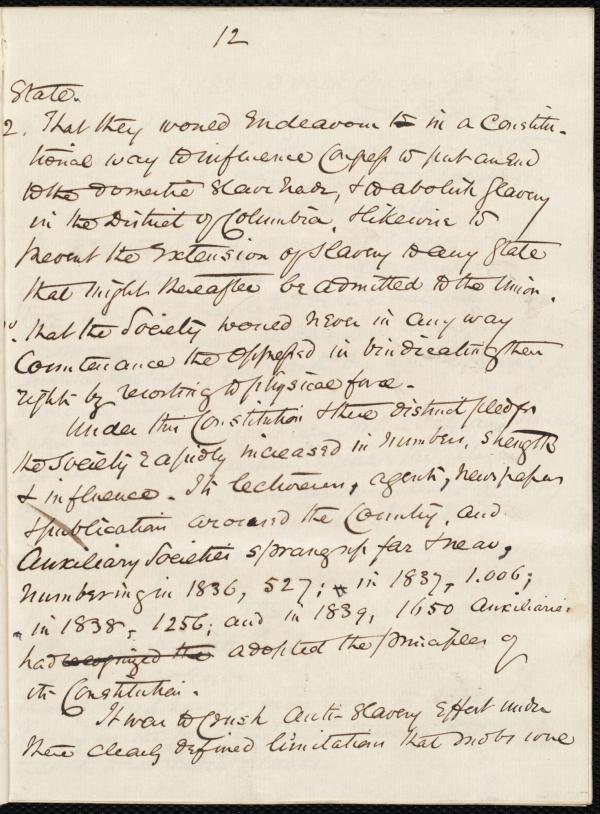 12
State.
2. That they would Endeavour in a Constitu-
tional way to influence Congress to put an End
to the Domestic Slave trade, & to abolish Slavery
in the District of Columbia, & likewise to
prevent the Extension of Slavery to any State
that might thereafter be admitted to the Union.
That the Society would never in any way
Countenance the oppressed in vindicating their
rights by resorting to physical force.
Under this Constitution & these distinct pledges
the Society rapidly increased in numbers, strength
& influence. Its lecturers, agents, newspapers
& publications around the Country, and
Auxiliary Societies sprang up far & near,
numbering in 1836, 527; in 1837, 1.006;
in 1838, 1256; and in 1839, 1650 Auxiliaries
had recognized the adopted the principles of
its Constitution.
It was to Crush Anti-Slavery Effort under
these clearly defined limitations that mobs were